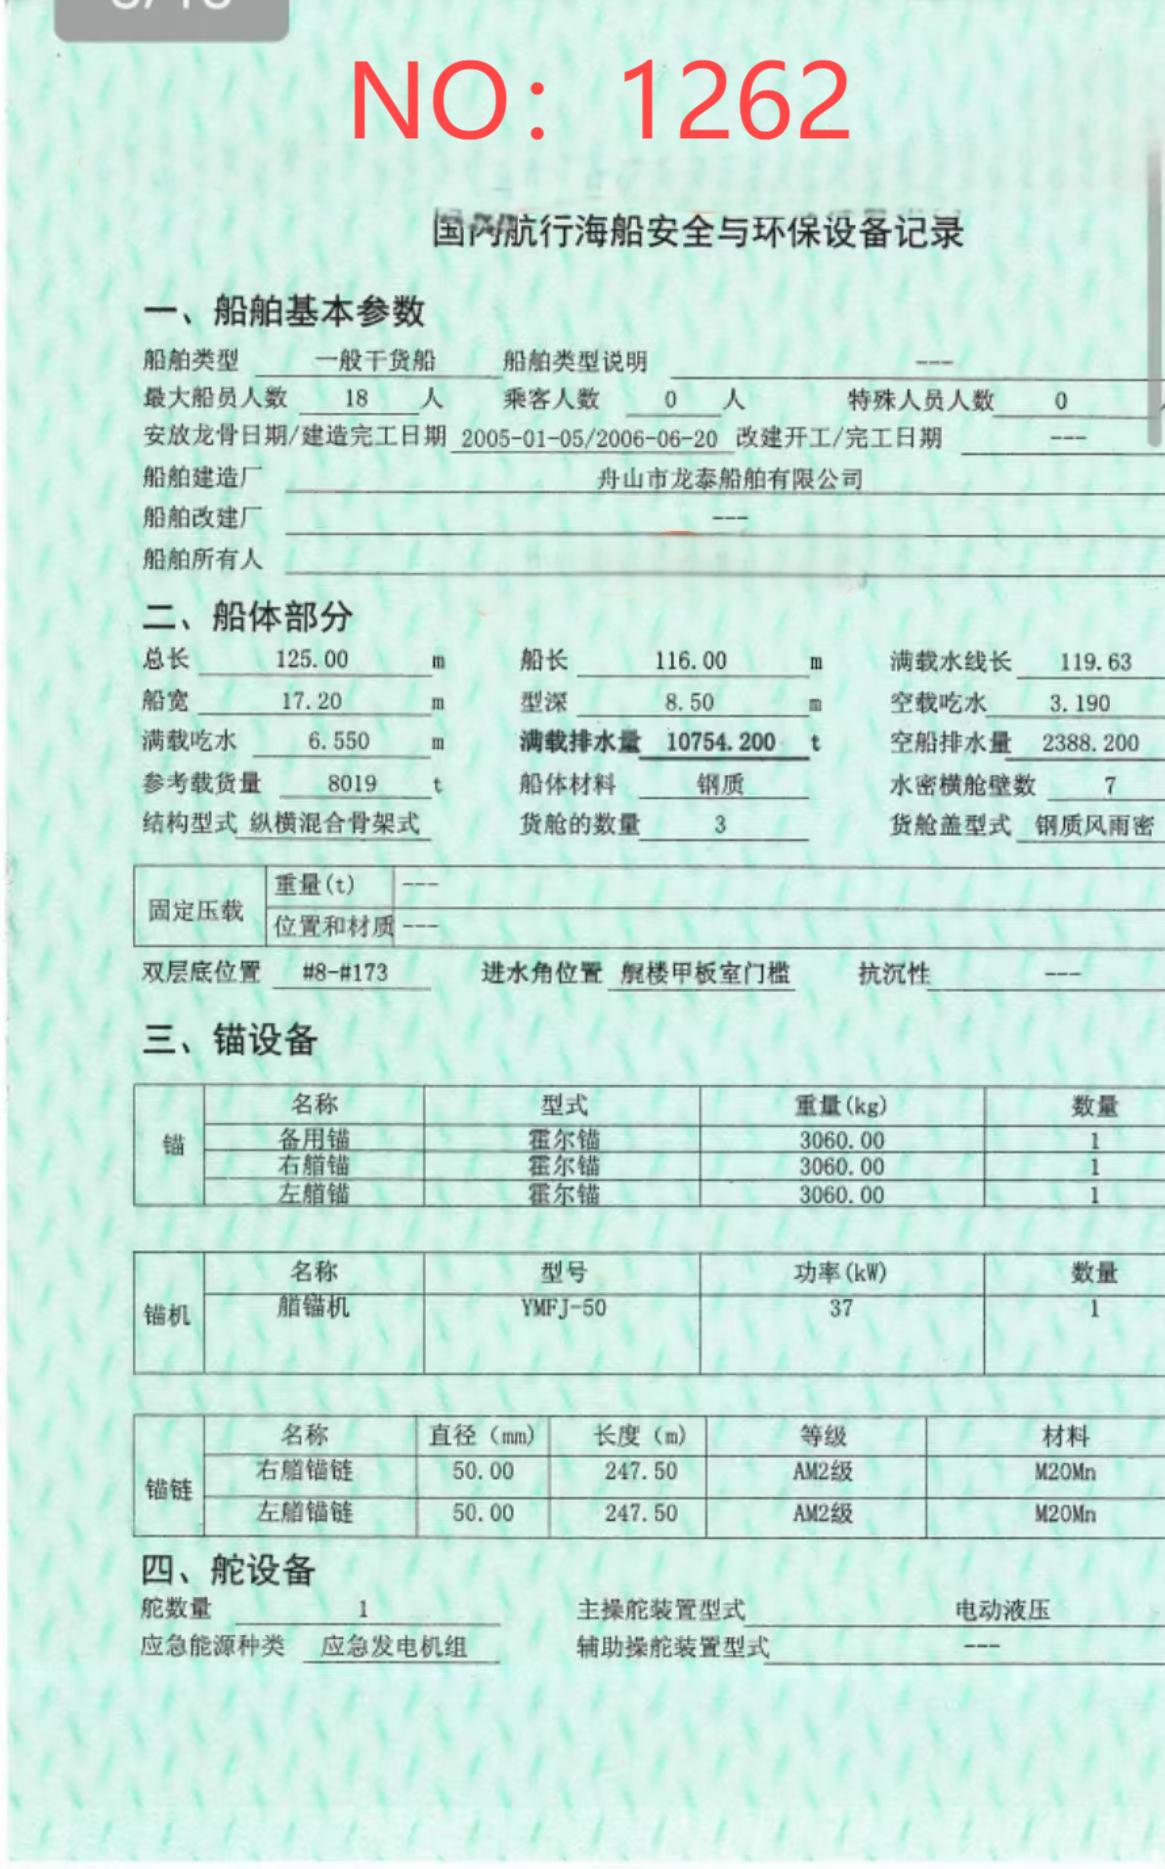 NO：1262
国内航行海船安全与环保设备记录
一、船舶基本参数
船舶类型 一般干货船 船舶类型说明 ---
最大船员人数 18 人 乘客人数 0 人 特殊人员人数 0
安放龙骨日期/建造完工日期 2005-01-05/2006-06-20 改建开工/完工日期 ---
船舶建造厂 舟山市龙泰船舶有限公司
船舶改建厂 ---
船舶所有人
二、船体部分
总长 125.00 m 船长 116.00 m 满载水线长 119.63
船宽 17.20 m 型深 8.50 m 空载吃水 3.190
满载吃水 6.550 m 满载排水量 10754.200 t 空船排水量 2388.200
参考载货量 8019 t 船体材料 钢质 水密横舱壁数 7
结构型式 纵横混合骨架式 货舱的数量 3 货舱盖型式 钢质风雨密
固定压载 重量(t) ---
位置和材质 ---
双层底位置 #8-#173 进水角位置 艉楼甲板室门槛 抗沉性 ---
三、锚设备
锚 名称 型式 重量(kg) 数量
备用锚 霍尔锚 3060.00 1
右艏锚 霍尔锚 3060.00 1
左艏锚 霍尔锚 3060.00 1
锚机 名称 型号 功率(kW) 数量
艏锚机 YMFJ-50 37 1
锚链 名称 直径（mm） 长度（m） 等级 材料
右艏锚链 50.00 247.50 AM2级 M20Mn
左艏锚链 50.00 247.50 AM2级 M20Mn
四、舵设备
舵数量 1 主操舵装置型式 电动液压
应急能源种类 应急发电机组 辅助操舵装置型式 ---